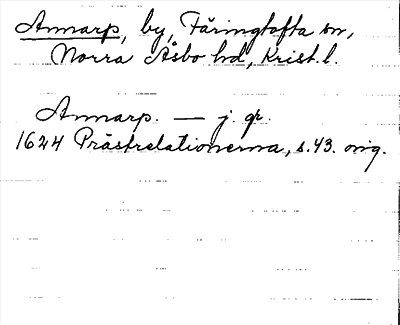 Annarp, by, Färingtofta sn,
Norra Åsbo hd, Krist. l.
Annarp. — j. gr.
1624 Prästrelationerna, s. 43. orig.